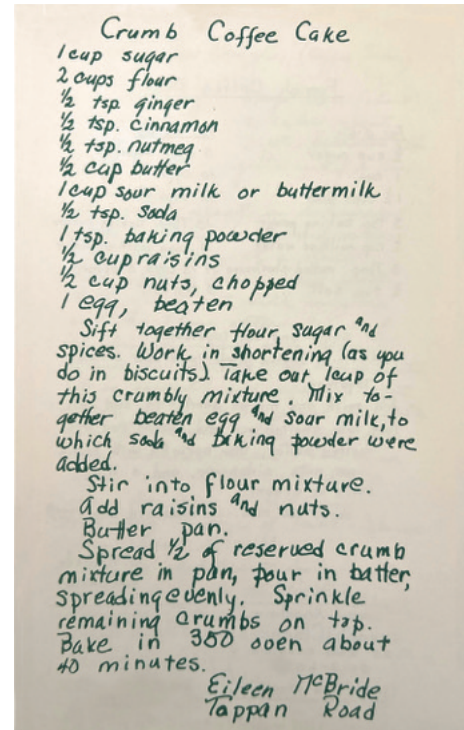 Crumb Coffee Cake
1 cup sugar
2 cups flour
½ tsp. ginger
½ tsp. cinnamon
½ tsp. nutmeg
½ cup butter
1 cup sour milk or buttermilk
½ tsp. Soda
1 tsp. baking powder
½ cup raisins
½ cup nuts, chopped
1 egg, beaten
Sift together flour, sugar and
spices. Work in shortening (as you
do in biscuits). Take out 1 cup of
this crumbly mixture. Mix to-
gether beaten egg and sour milk, to
which soda and baking powder were
added.
Stir into flour mixture.
Add raisins and nuts.
Butter pan.
Spread ½ of reserved crumb
mixture in pan, pour in batter,
spreading evenly. Sprinkle
remaining crumbs on top.
Bake in 350 oven about
40 minutes.
Eileen McBride
Tappan Road